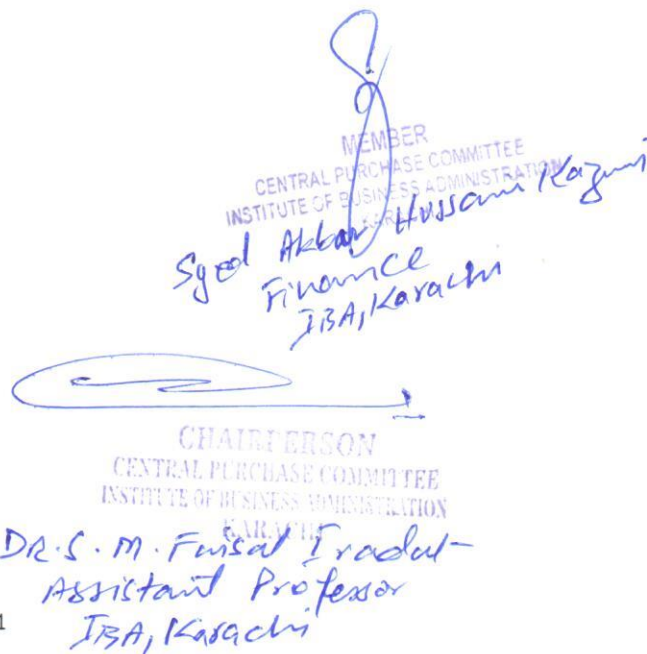 MEMBER
CENTRAL PURCHASE COMMITTEE
INSTITUTE OF BUSINESS ADMINISTRATION
Syed Akbar Hussain Kazmi
Finance
IBA, Karachi
CHAIRPERSON
CENTRAL PURCHASE COMMITTEE
INSTITUTE OF BUSINESS ADMINISTRATION
KARACHI
DR. S. M. Faisal Iradat
Assistant Professor
IBA, Karachi
1